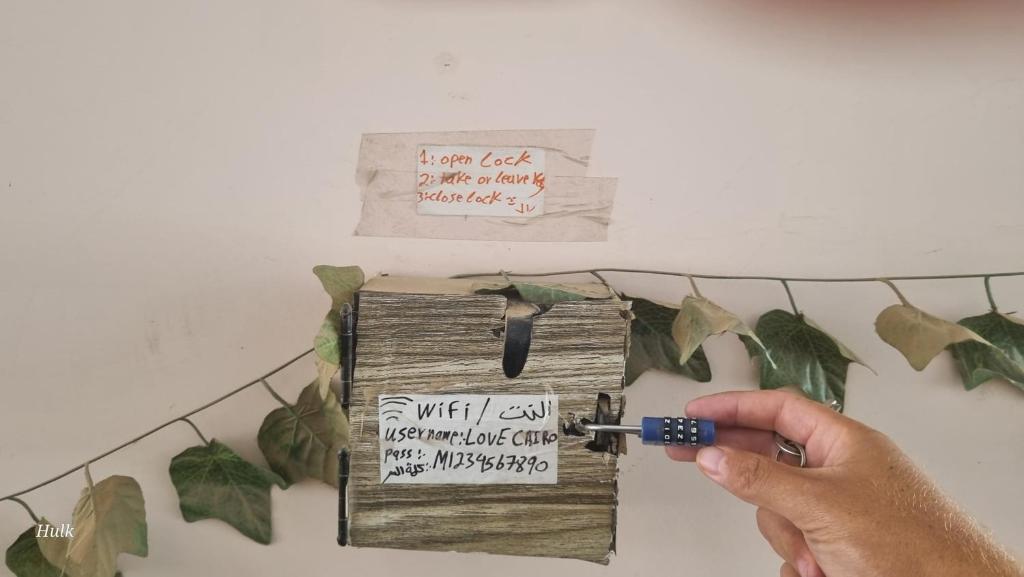 1: open Lock
2: take or leave
3: close Lock =
WiFi / النت
user name:. LOVE CAIRO
pass:. M1234567890
كلمة السر:.
Hulk